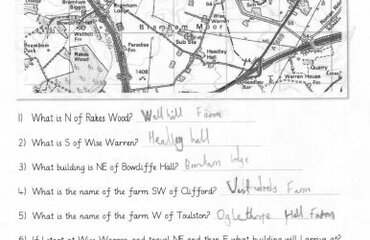 Bramham
Biggin
Bramham
Lodge
Wellhill
Fm
Bramham Moor
Wise
Warren
64
Paradise
Fm
Sub Sta
Headley
Hall
Rakes
Wood
1408
Headley
Bar
Quarry
Warren House
Fm
1) What is N of Rakes Wood? Wellhill Farm
2) What is S of Wise Warren? Headley hall
3) What building is NE of Bowcliffe Hall? Bramham lodge
4) What is the name of the farm SW of Clifford? Westwoods Farm
5) What is the name of the farm W of Toulston? Oglethorpe Hall Farm
6) If I start at Wise Warren and travel NE and then E what building will I arrive at?